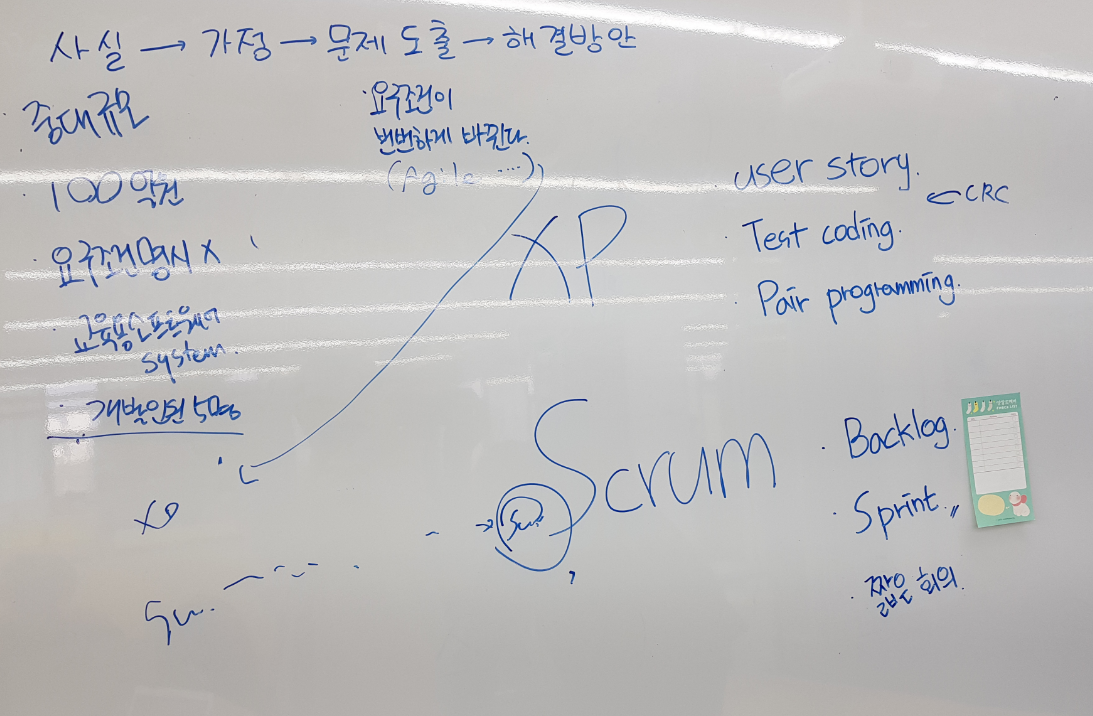 사실 → 가정 → 문제 도출 → 해결방안
· 중대규모
· 100억원
· 요구조건명시 X
· 교육용소프트웨어
system.
· 개발인원 50명
· 요구조건이
빈번하게 바뀐다.
(Agile ....)
XP
· user story.
← CRC
· Test coding.
· Pair programming.
Scrum
· Backlog.
· Sprint
· 짧은 회의.